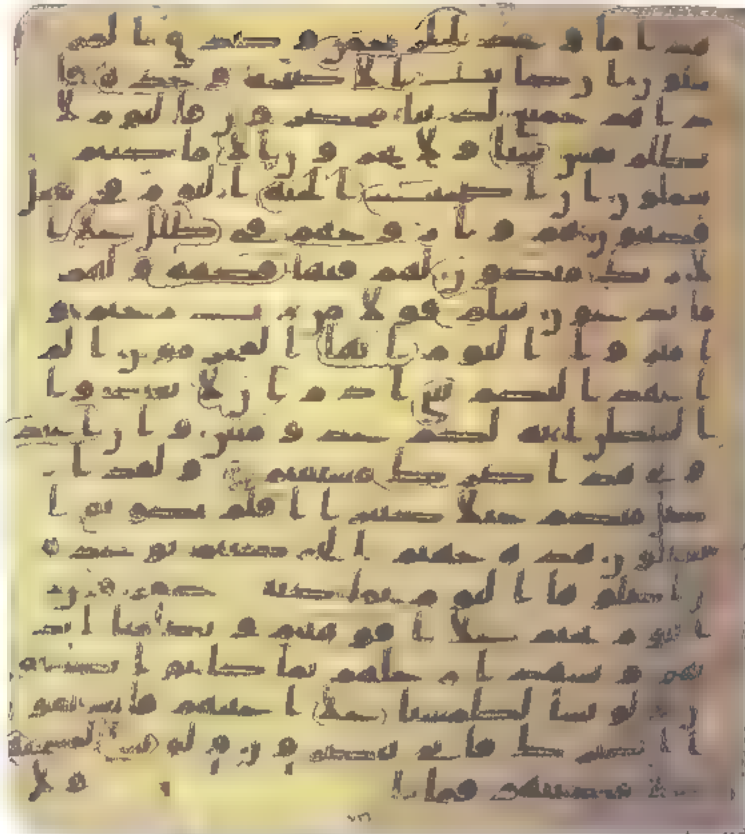 قدنا هذا ما وعد الرحمن وصدق المر
سلون ان كانت الا صيحة وحدة فاذا
هم جميع لدينا محضرون فاليوم لا
تظلم نفس شيا ولا تجزون الا ما كنتم
تعملون ان اصحب الجنة اليوم في شغل
فكهون هم وازوجهم في ظلل على ا
لارىك متكون لهم فيها فكهة ولهم
ما يدعون سلم قولا من رب رحيم و
امتزوا اليوم ايها المجرمون الم
اعهد اليكم يبني ادم ان لا تعبدوا
الشيطن انه لكم عدو مبين وان اعبد
وني هذا صرط مستقيم ولقد ا
ضل منكم جبلا كثيرا افلم تكونوا
تعقلون هذه جهنم التي كنتم توعدو
ن اصلوها اليوم بما كنتم تكفرون
اليوم نختم على افوههم وتكلمنا ايد
يهم وتشهد ارجلهم بما كانوا يكسبون
ولو نشا لطمسنا على اعينهم فاستبقو
ا الصرط فانى يبصرون ولو نشا لمسخنهم
على مكنتهم فما ا ولا